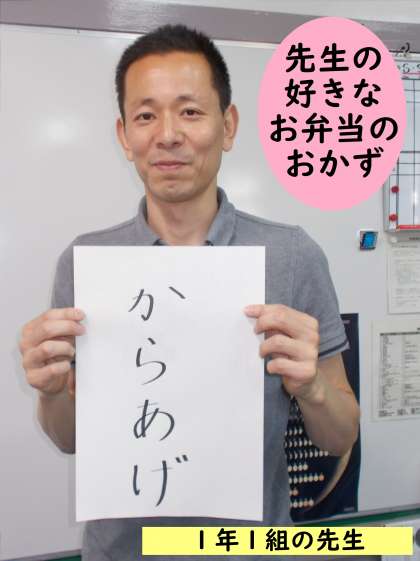 先生の
好きな
お弁当の
おかず
からあげ
1年1組の先生